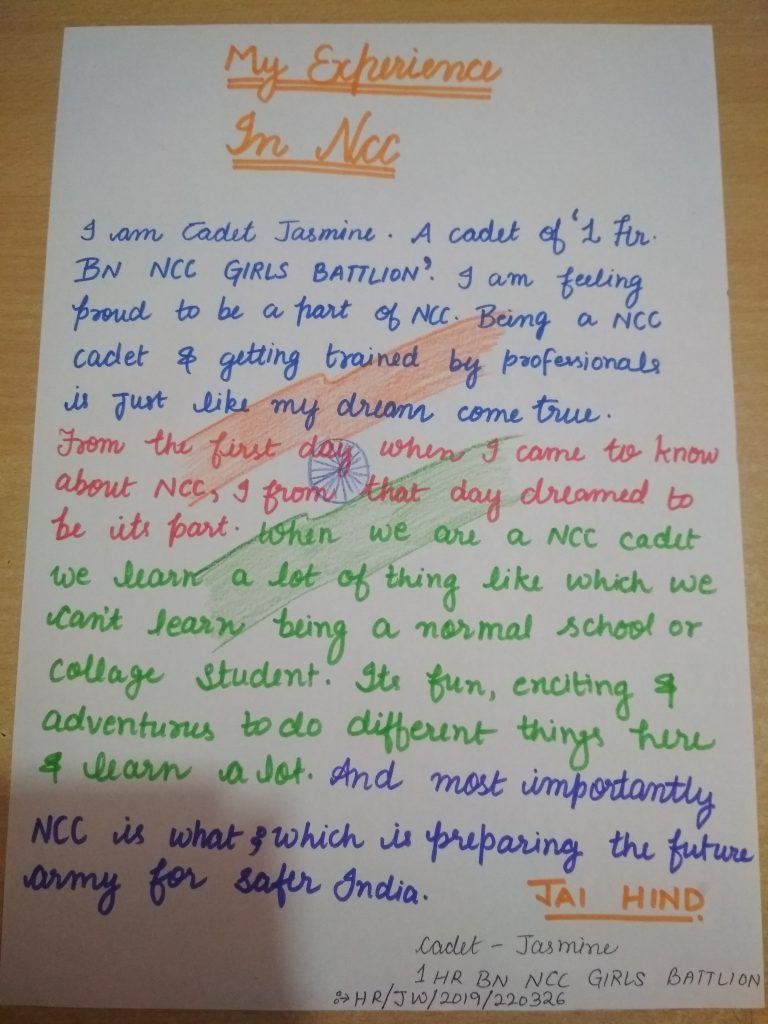 My Experience
In NCC
I am Cadet Jasmine. A cadet of '1 Hr.
BN NCC GIRLS BATTLION'. I am feeling
proud to be a part of NCC. Being a NCC
cadet & getting trained by professionals
is just like my dream come true.
From the first day when I came to know
about NCC, I from that day dreamed to
be its part. When we are a NCC cadet
we learn a lot of thing like which we
can't learn being a normal school or
collage student. Its fun, exciting &
adventurus to do different things here
& learn a lot. And most importantly
NCC is what & which is preparing the future
army for safer India.
JAI HIND.
Cadet - Jasmine
1 HR BN NCC GIRLS BATTLION
:→ HR/JW/2019/220326